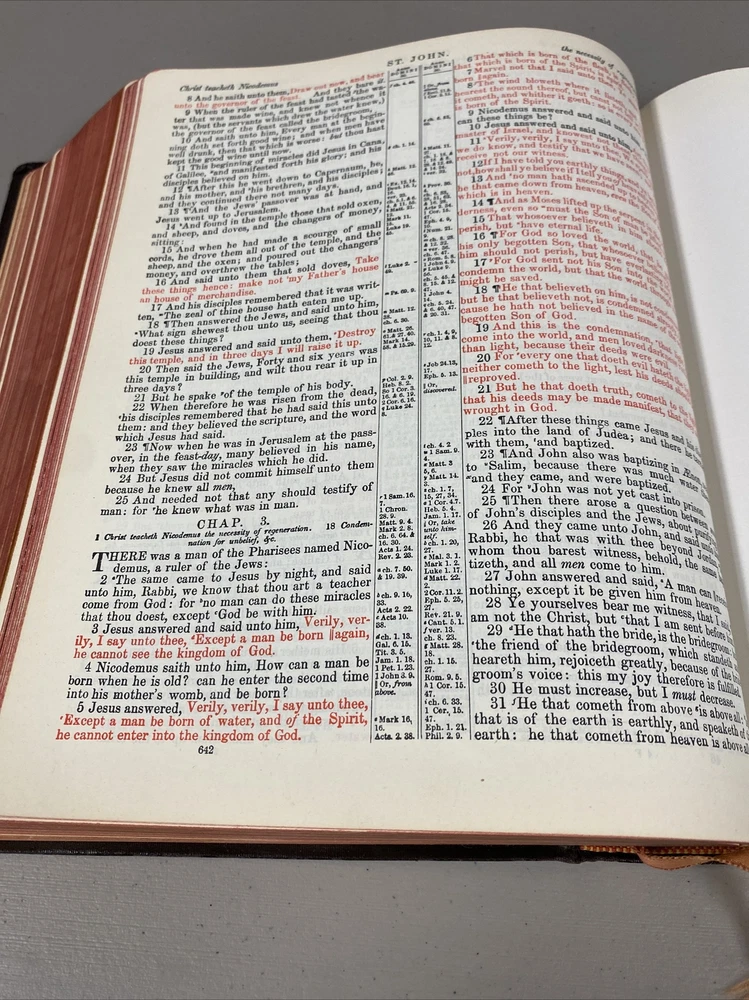 ST. JOHN.
Christ teacheth Nicodemus
the necessity of
8 And he saith unto them, Draw out now, and bear
unto the governor of the feast. And they bare it.
9 When the ruler of the feast had tasted the wa-
ter that was made wine, and knew not whence it
was, (but the servants which drew the water knew,)
the governor of the feast called the bridegroom,
10 And saith unto him, Every man at the begin-
ning doth set forth good wine; and when men have
well drunk, then that which is worse: but thou hast
kept the good wine until now.
11 This beginning of miracles did Jesus in Cana
of Galilee, and manifested forth his glory; and his
disciples believed on him.
12 ¶After this he went down to Capernaum, he,
and his mother, and his brethren, and his disciples;
and they continued there not many days.
13 ¶And the Jews' passover was at hand, and
Jesus went up to Jerusalem.
14 And found in the temple those that sold oxen,
and sheep, and doves, and the changers of money,
sitting:
15 And when he had made a scourge of small
cords, he drove them all out of the temple, and the
sheep, and the oxen; and poured out the changers'
money, and overthrew the tables;
16 And said unto them that sold doves, Take
these things hence: make not my Father's house
an house of merchandise.
17 And his disciples remembered that it was writ-
ten, The zeal of thine house hath eaten me up.
18 ¶Then answered the Jews, and said unto him,
What sign shewest thou unto us, seeing that thou
doest these things?
19 Jesus answered and said unto them, Destroy
this temple, and in three days I will raise it up.
20 Then said the Jews, Forty and six years was
this temple in building, and wilt thou rear it up in
three days?
21 But he spake of the temple of his body.
22 When therefore he was risen from the dead,
his disciples remembered that he had said this unto
them: and they believed the scripture, and the word
which Jesus had said.
23 ¶Now when he was in Jerusalem at the pass-
over, in the feast-day, many believed in his name,
when they saw the miracles which he did.
24 But Jesus did not commit himself unto them
because he knew all men,
25 And needed not that any should testify of
man: for he knew what was in man.
CHAP. 3.
1 Christ teacheth Nicodemus the necessity of regeneration. 18 Condem-
nation for unbelief, &c.
THERE was a man of the Pharisees named Nico-
demus, a ruler of the Jews:
2 The same came to Jesus by night, and said
unto him, Rabbi, we know that thou art a teacher
come from God: for no man can do these miracles
that thou doest, except God be with him.
3 Jesus answered and said unto him, Verily, ver-
ily, I say unto thee, Except a man be born ‖again,
he cannot see the kingdom of God.
4 Nicodemus saith unto him, How can a man be
born when he is old? can he enter the second time
into his mother's womb, and be born?
5 Jesus answered, Verily, verily, I say unto thee,
Except a man be born of water, and of the Spirit,
he cannot enter into the kingdom of God.
642
Luke 2.
49.
Ps. 69. 9.
Matt. 12.
38.
ch. 6. 30.
Matt. 26.
61. & 27. 40.
Mark 14.
58. & 15. 29.
Col. 2. 9.
Heb. 8. 2.
So 1 Cor. 3.
16. & 6. 19.
2 Cor. 6. 16.
Luke 24.
8.
1 Sam. 16.
7.
1 Chron.
28. 9.
Matt. 9. 4.
Mark 2. 8.
ch. 6. 64. &
16. 30.
Acts 1. 24.
Rev. 2. 23.
ch. 7. 50.
& 19. 39.
ch. 9. 16,
33.
Acts 2. 22.
Acts 10.
38.
ch. 1. 13.
Gal. 6. 15.
Tit. 3. 5.
Jam. 1. 18.
1 Pet. 1. 23.
1 John 3. 9.
‖ Or, from
above.
Mark 16,
16.
Acts. 2. 38.
Job 24. 13,
17.
Eph. 5. 13.
‖ Or,
discovered.
ch. 4. 2
1 Sam. 9.
4.
Matt. 3
5, 6.
Matt. 14.
3.
ch. 1. 7,
15, 27, 34.
1 Cor. 4. 7.
Heb. 5. 4.
Jam. 1. 17.
‖ Or, take
unto him-
self.
ch. 1. 20,
27.
Mal. 3. 1.
Mark 1. 2.
Luke 1. 17.
Matt. 22.
2.
2 Cor. 11. 2.
Eph. 5. 25,
27.
Rev. 21. 9.
Cant. 5. 1.
ver. 13.
ch. 8. 23.
Matt. 28.
18.
ch. 1. 15,
27.
Rom. 9. 5.
1 Cor. 15.
47.
ch. 6. 33.
1 Cor. 15.
47.
Eph. 1. 21.
Phil. 2. 9.
6 That which is born of the
that which is born of the Spirit,
7 Marvel not that I said unto
born ‖again.
8 The wind bloweth where it
hearest the sound thereof, but
it cometh, and whither it goeth: so
born of the Spirit.
9 Nicodemus answered and said unto
can these things be?
10 Jesus answered and said unto him,
of Israel, and knowest not
11 Verily, verily, I say unto thee,
we do know, and testify
receive not our witness.
12 If I have told you earthly things,
not, how shall ye believe if I tell you
13 And no man hath ascended up
he that came down from heaven,
which is in heaven.
14 ¶And as Moses lifted up the serpent
derness, even so must the Son of man
15 That whosoever believeth in him
perish, but have eternal life.
16 ¶For God so loved the world, that
his only begotten Son, that whosoever
him should not perish, but have everlasting
17 For God sent not his Son into the
condemn the world, but that the world
might be saved.
18 ¶He that believeth on him, is not
but he that believeth not, is condemned
cause he hath not believed in the name of
begotten Son of God.
19 And this is the condemnation, that
come into the world, and men loved darkness
than light, because their deeds were evil.
20 For every one that doeth evil hateth the
neither cometh to the light, lest his deeds
‖reproved.
21 But he that doeth truth, cometh to the
that his deeds may be made manifest, that they
wrought in God.
22 ¶After these things came Jesus and his
ples into the land of Judea; and there he
with them, and baptized.
23 ¶And John also was baptizing in Enon
to Salim, because there was much water
and they came, and were baptized.
24 For John was not yet cast into prison.
25 ¶Then there arose a question between
of John's disciples and the Jews, about
26 And they came unto John, and said
Rabbi, he that was with thee beyond Jordan,
whom thou barest witness, behold, the same
tizeth, and all men come to him.
27 John answered and said, A man can
nothing, except it be given him from heaven.
28 Ye yourselves bear me witness, that I
am not the Christ, but that I am sent before
29 He that hath the bride, is the bridegroom:
the friend of the bridegroom, which standeth
heareth him, rejoiceth greatly, because of the
groom's voice: this my joy therefore is fulfilled.
30 He must increase, but I must decrease.
31 He that cometh from above is above all:
that is of the earth is earthly, and speaketh of
earth: he that cometh from heaven is above all